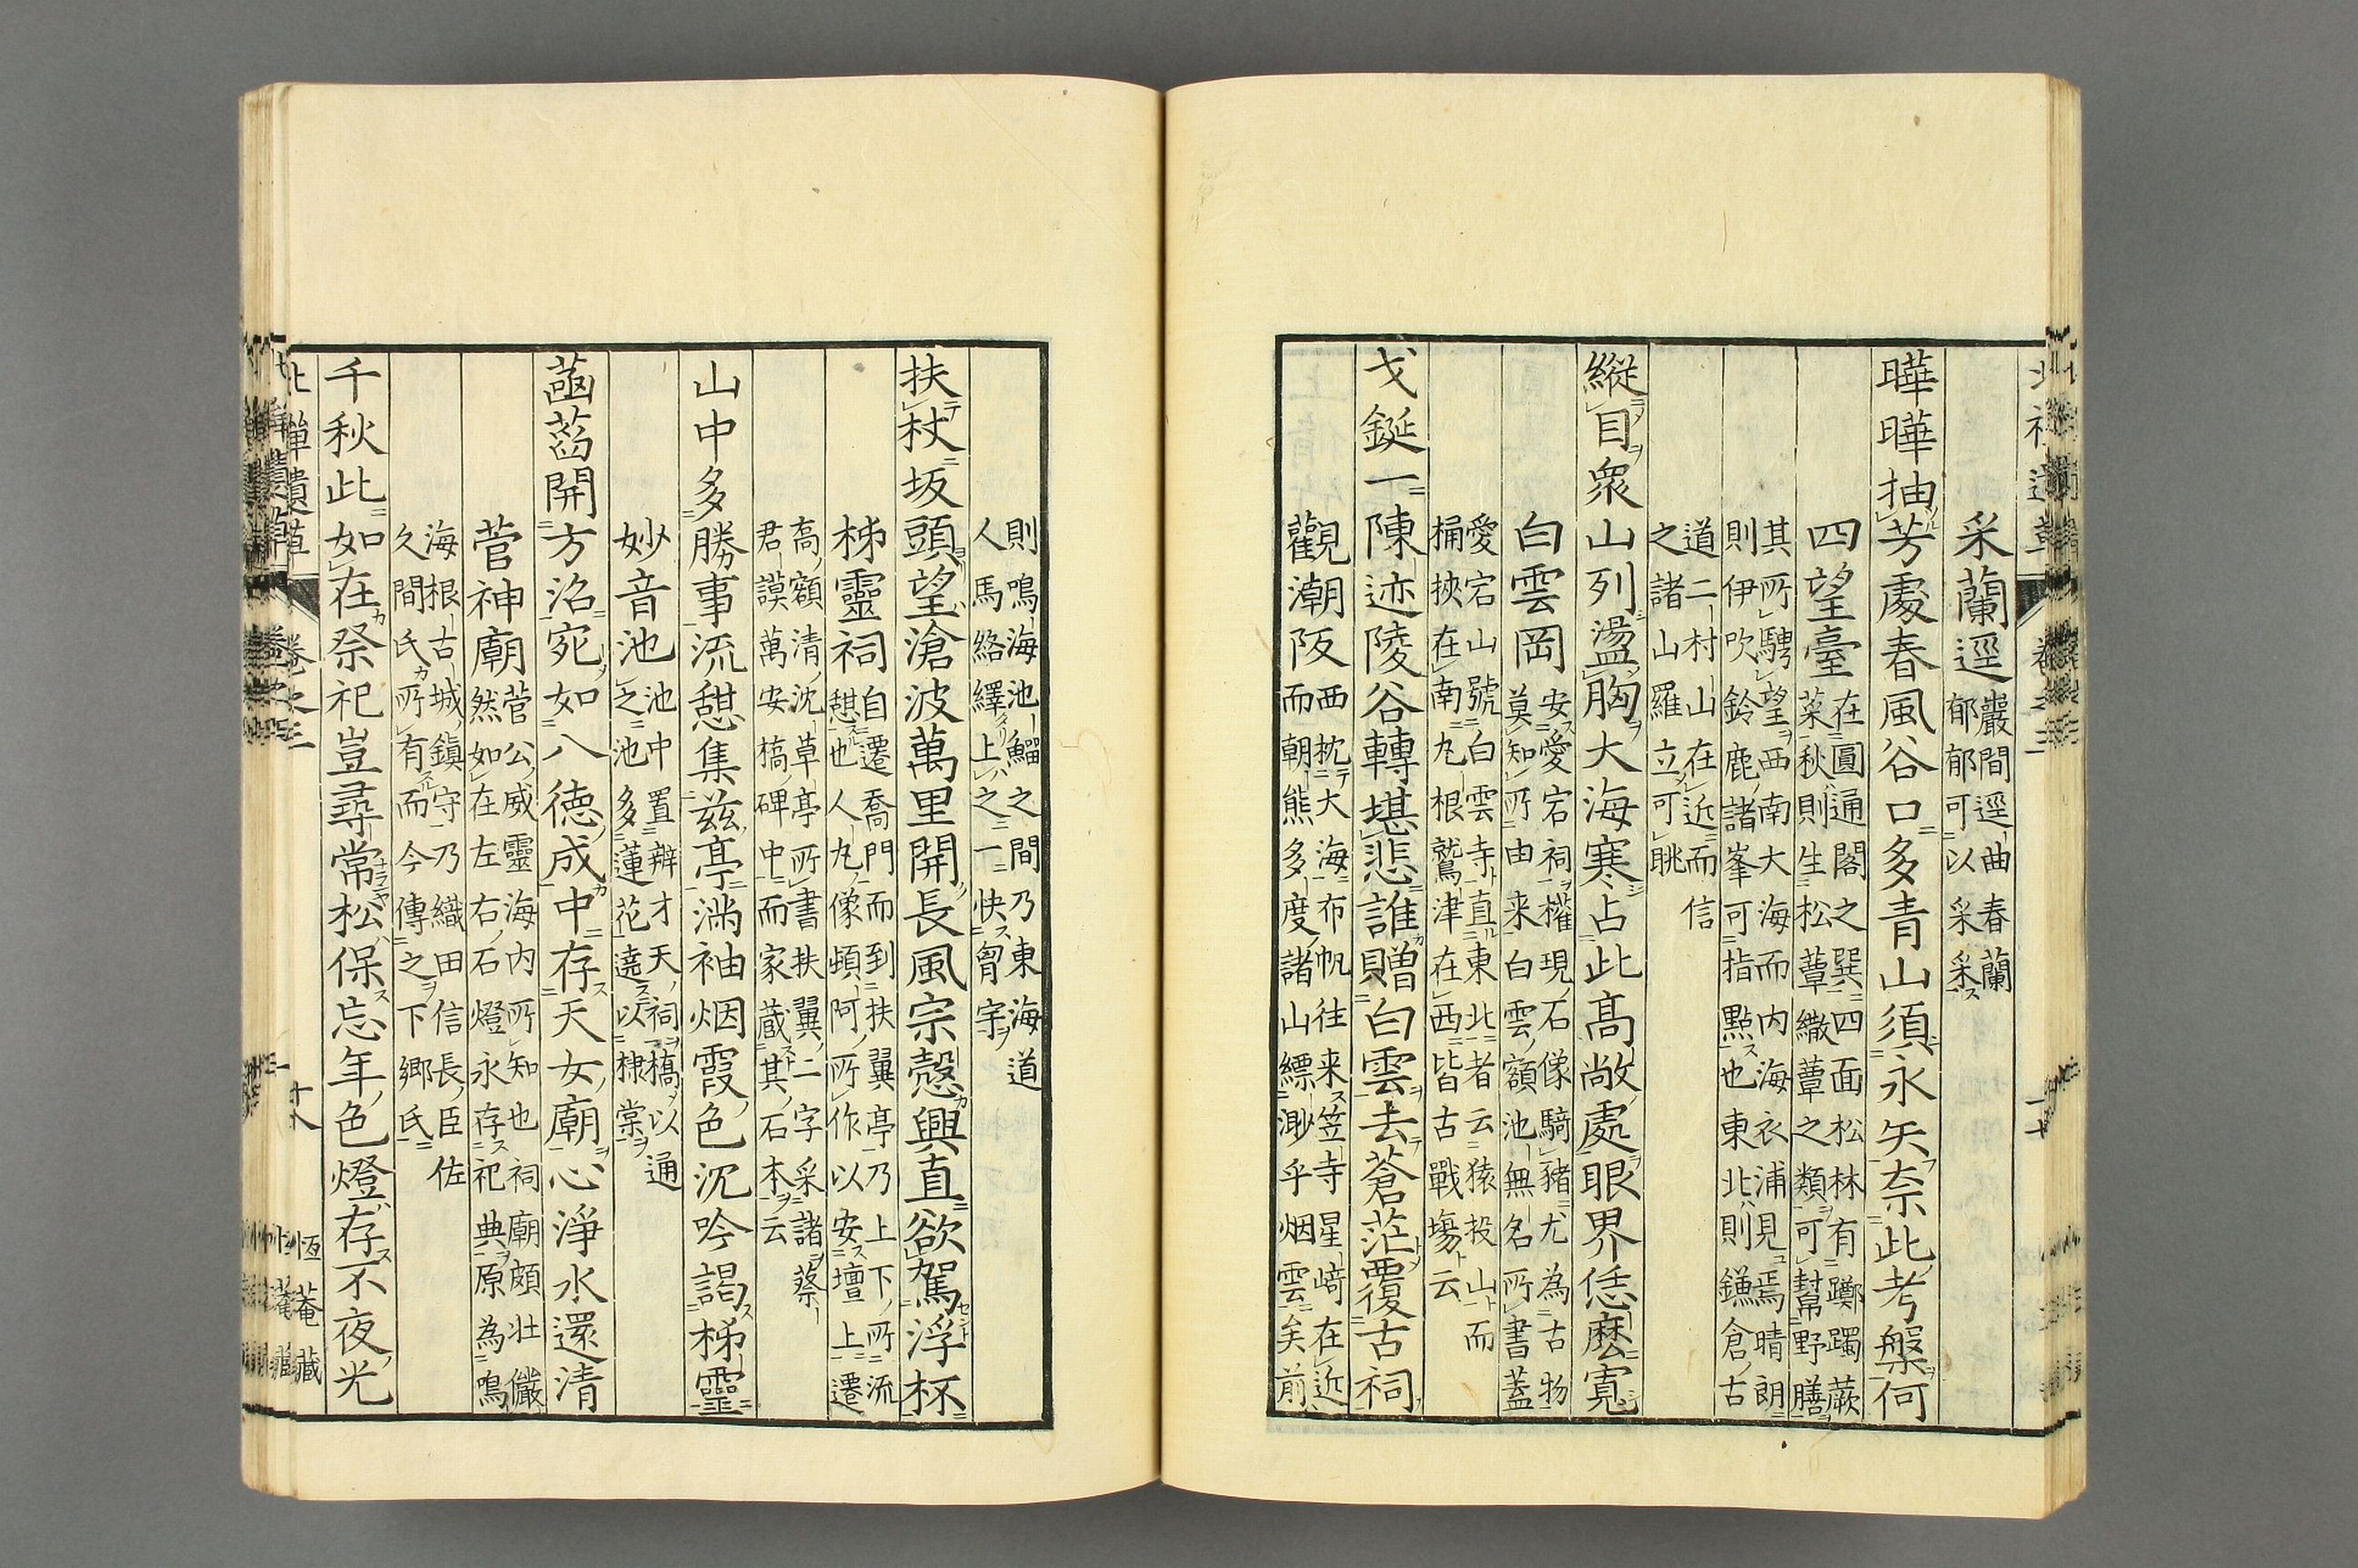 采蘭逕 巖間逕曲春蘭
郁郁可以采采
曄曄抽芳處春風谷口多青山須永矢奈此考槃何
四望臺 在圓通閣之巽四面松林有躑躅蕨
菜秋則生松蕈繖蕈之類可幇野膳
其所騁望西南大海而内海衣浦見焉晴朗
則伊吹鈴鹿諸峯可指點也東北則鎌倉古
道二村山在近而信
之諸山羅立可眺
縱目衆山列盪胸大海寒占此高敞處眼界恁麽寬
白雲岡 安愛宕祠權現石像騎豬尤為古物
莫知所由来白雲額池無名所書蓋
愛宕山號白雲寺直東北者云猿投山而
桶挾在南九根鷲津在西皆古戰塲云
戈鋋一陳迹陵谷轉堪悲誰贈白雲去蒼茫覆古祠
觀潮阪 西枕大海布帆往来笠寺星﨑在近
而朝熊多度諸山縹渺乎烟雲矣前
則鳴海池鰡之間乃東海道
人馬絡繹上之一快胷宇
扶杖坂頭望滄波萬里開長風宗慤興直欲駕浮杯
梯靈祠 自遷喬門而到扶翼亭乃上下所流
憇也人九像頻阿所作以安壇上遷
喬額清沈草亭所書扶翼二字采諸蔡
君謨萬安橋碑中而家蔵其石本云
山中多勝事流憇集茲亭滿袖烟霞色沉吟謁梯靈
妙音池 池中置辨才天祠橋以通
之池多蓮花遶以棣棠
菡萏開方沼宛如八德成中存天女廟心淨水還清
菅神廟 菅公威靈海内所知也祠廟頗壯儼
然如在左右石燈永存祀典原為鳴
海根古城鎮守乃織田信長臣佐
久間氏所有而今傳之下郷氏
千秋此如在祭祀豈尋常松保忘年色燈存不夜光
北禪遺草 卷之三 十八 恆菴藏